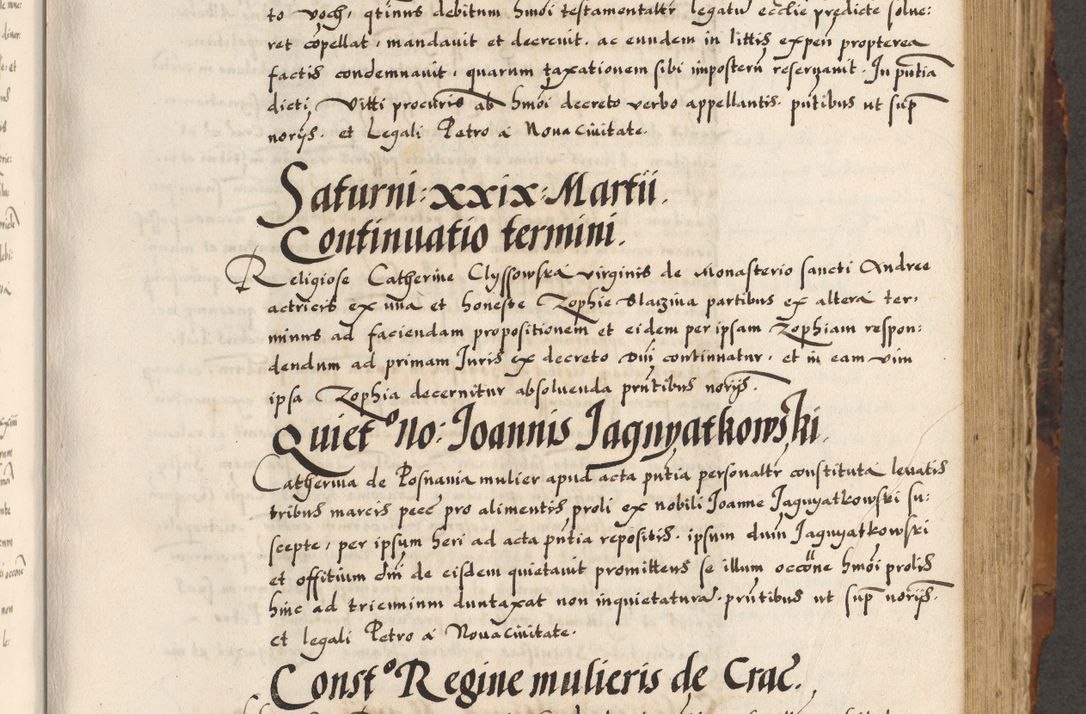 to voch, qtinus debitum hmoi testamentaltr legatu ecclie predicte solue:
ret copellat, mandauit et decreuit. ac eundem in littis expen propterea
factis condemnauit, quarum taxationem sibi imposteru reseruauit. In pntia
dicti Vitti procuris ab hmoi decreto verbo appellantis. pntibus ut sup
norijs. et Legali Petro a Noua Ciuitate.
Saturni: xxix: Martii.
Continuatio termini.
Religiose Catherine Clyssowska virginis de Monasterio sancti Andree
actricis ex una et honeste Zophie partibus ex altera ter:
minus ad faciendam propositionem et eidem per ipsam Zophiam respon:
dendum ad primam Juris ex decreto Dni continuatur. et in eam vim
ipsa Zophia decernitur absoluenda pntibus norijs.
Quiet.o No: Joannis Jagnyatkowski.
Catherina de Posnania mulier apud acta pntia personaltr constituta leuatis
tribus marcis pecc pro alimentis proli ex nobili Joanne Jagnyatkowski su:
scepte, per ipsum heri ad acta pntia repositis. ipsum dnum Jagnyatkowski
et offitium dni de eisdem quietauit promittens se illum occone hmoi prolis
hinc ad triennium duntaxat non inquietatura. pntibus ut sup norijs.
et legali Petro a Nouaciuitate.
Const.o Regine mulieris de Crac.